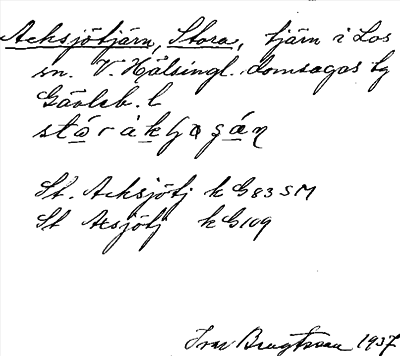 Acksjötjärn, Stora, tjärn i Los
sn. V. Hälsingl. domsagas tg
Gävleb. l
St. Acksjötj k G83 SM
St Axsjötj k G109
Ivar Bengtsson 1937